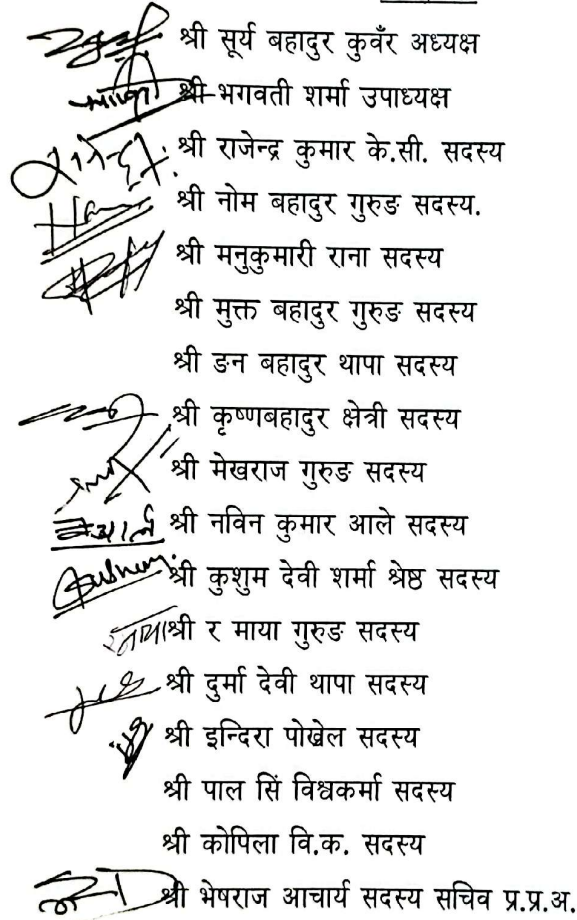 श्री सूर्य बहादुर कुवँर अध्यक्ष
श्री भगवती शर्मा उपाध्यक्ष
श्री राजेन्द्र कुमार के.सी. सदस्य
श्री नोम बहादुर गुरुङ सदस्य.
श्री मनुकुमारी राना सदस्य
श्री मुक्त बहादुर गुरुङ सदस्य
श्री ङन बहादुर थापा सदस्य
श्री कृष्णबहादुर क्षेत्री सदस्य
श्री मेखराज गुरुङ सदस्य
श्री नविन कुमार आले सदस्य
श्री कुशुम देवी शर्मा श्रेष्ठ सदस्य
श्री र माया गुरुङ सदस्य
श्री दुर्मा देवी थापा सदस्य
श्री इन्दिरा पोखेल सदस्य
श्री पाल सिं विश्वकर्मा सदस्य
श्री कोपिला वि.क. सदस्य
श्री भेषराज आचार्य सदस्य सचिव प्र.प्र.अ.